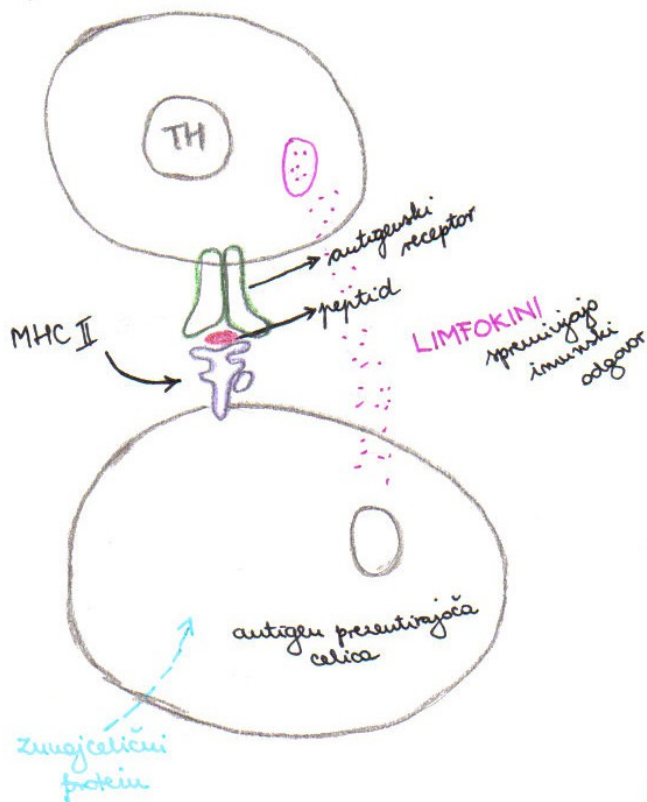 TH
antigenski
receptor
peptid
MHC II
LIMFOKINI
spreminjajo
imunski
odgovor
antigen prezentirajoča
celica
zunajcelični
protein